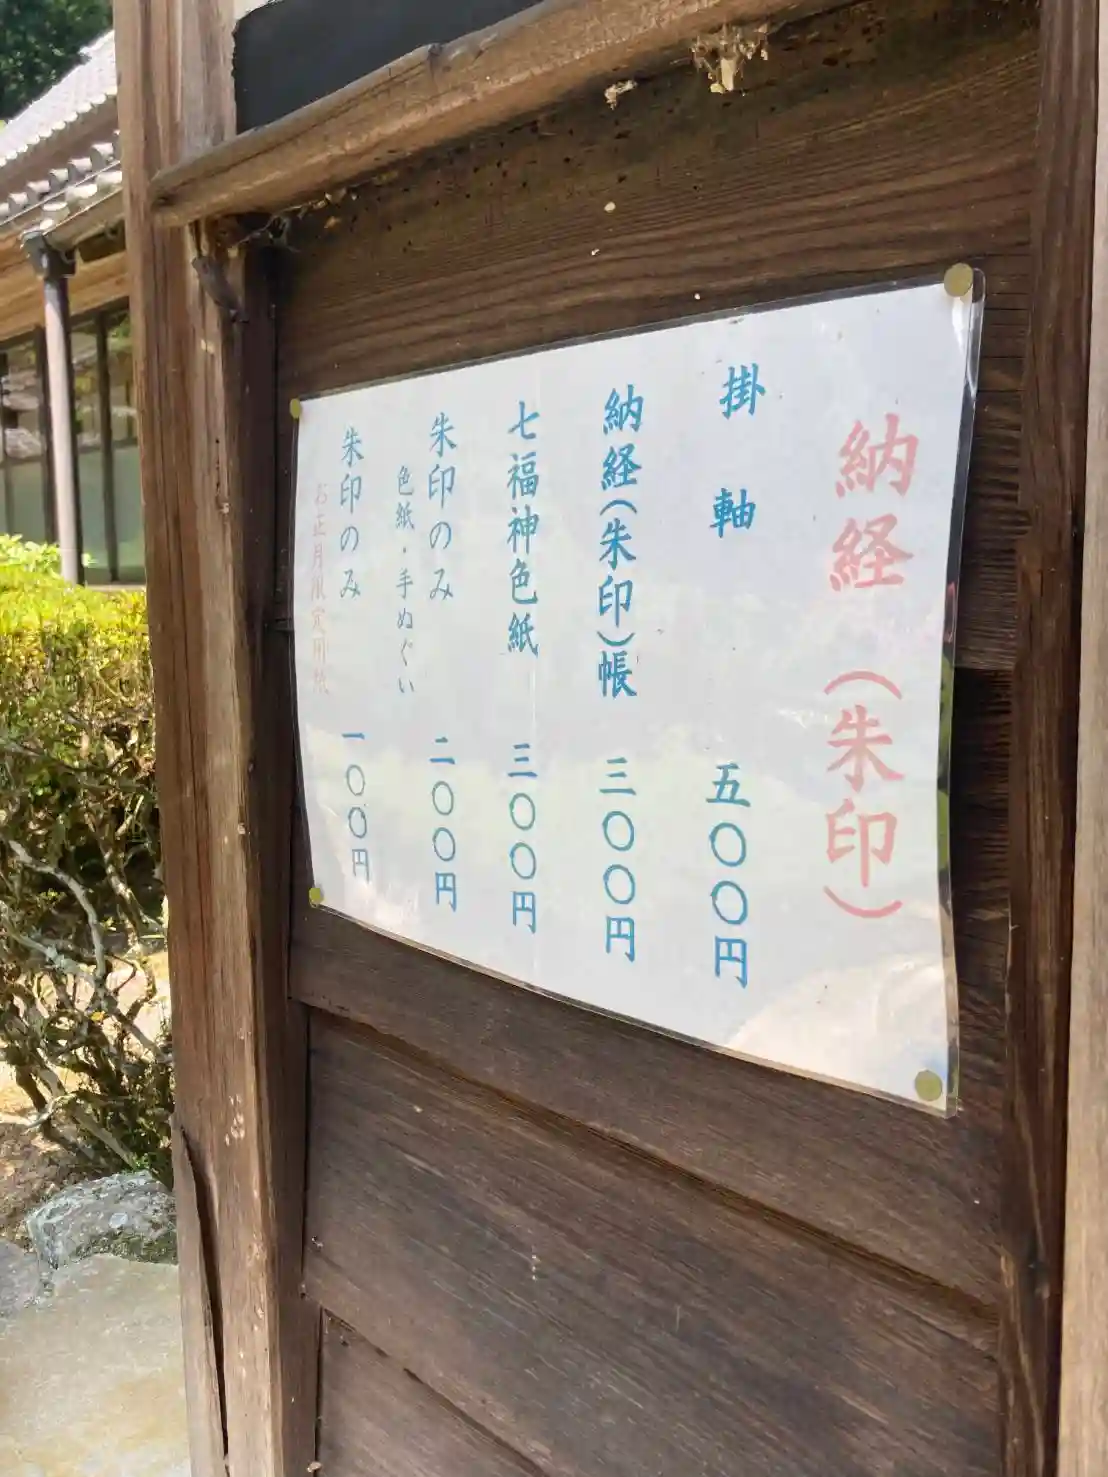 納経（朱印）
掛軸 五〇〇円
納経（朱印）帳 三〇〇円
七福神色紙 三〇〇円
朱印のみ 二〇〇円
色紙・手ぬぐい
朱印のみ 一〇〇円
お正月限定用紙